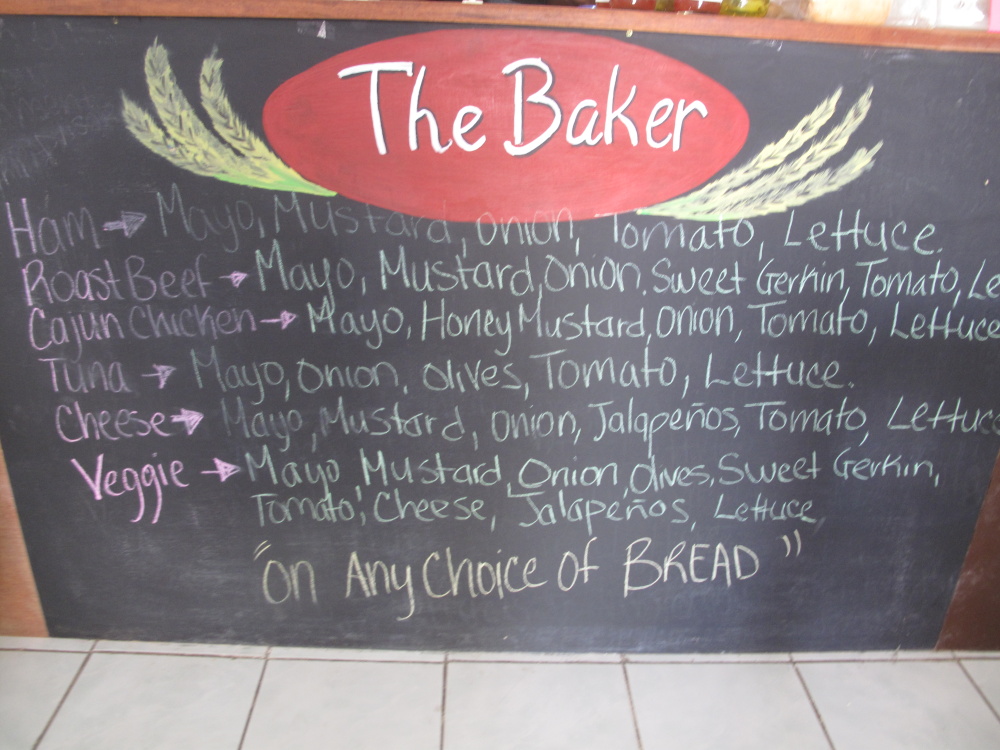 The Baker
Ham → Mayo, Mustard, Onion, Tomato, Lettuce.
Roast Beef → Mayo, Mustard, Onion. Sweet Gerkin, Tomato, Le
Cajun Chicken → Mayo, Honey Mustard, Onion, Tomato, Lettuce
Tuna → Mayo, Onion, Olives, Tomato, Lettuce.
Cheese → Mayo, Mustard, Onion, Jalapeños, Tomato, Lettuce
Veggie → Mayo, Mustard, Onion, Olives, Sweet Gerkin,
Tomato, Cheese, Jalapeños, Lettuce,
"On Any Choice Of BREAD"